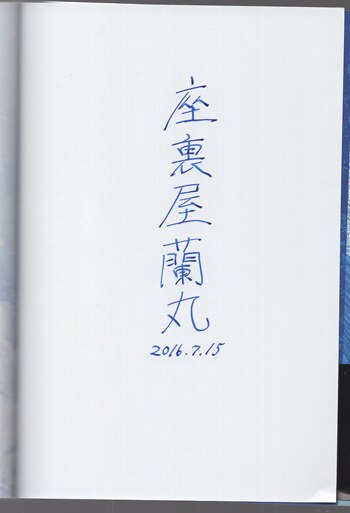 座裏屋蘭丸
2016.7.15